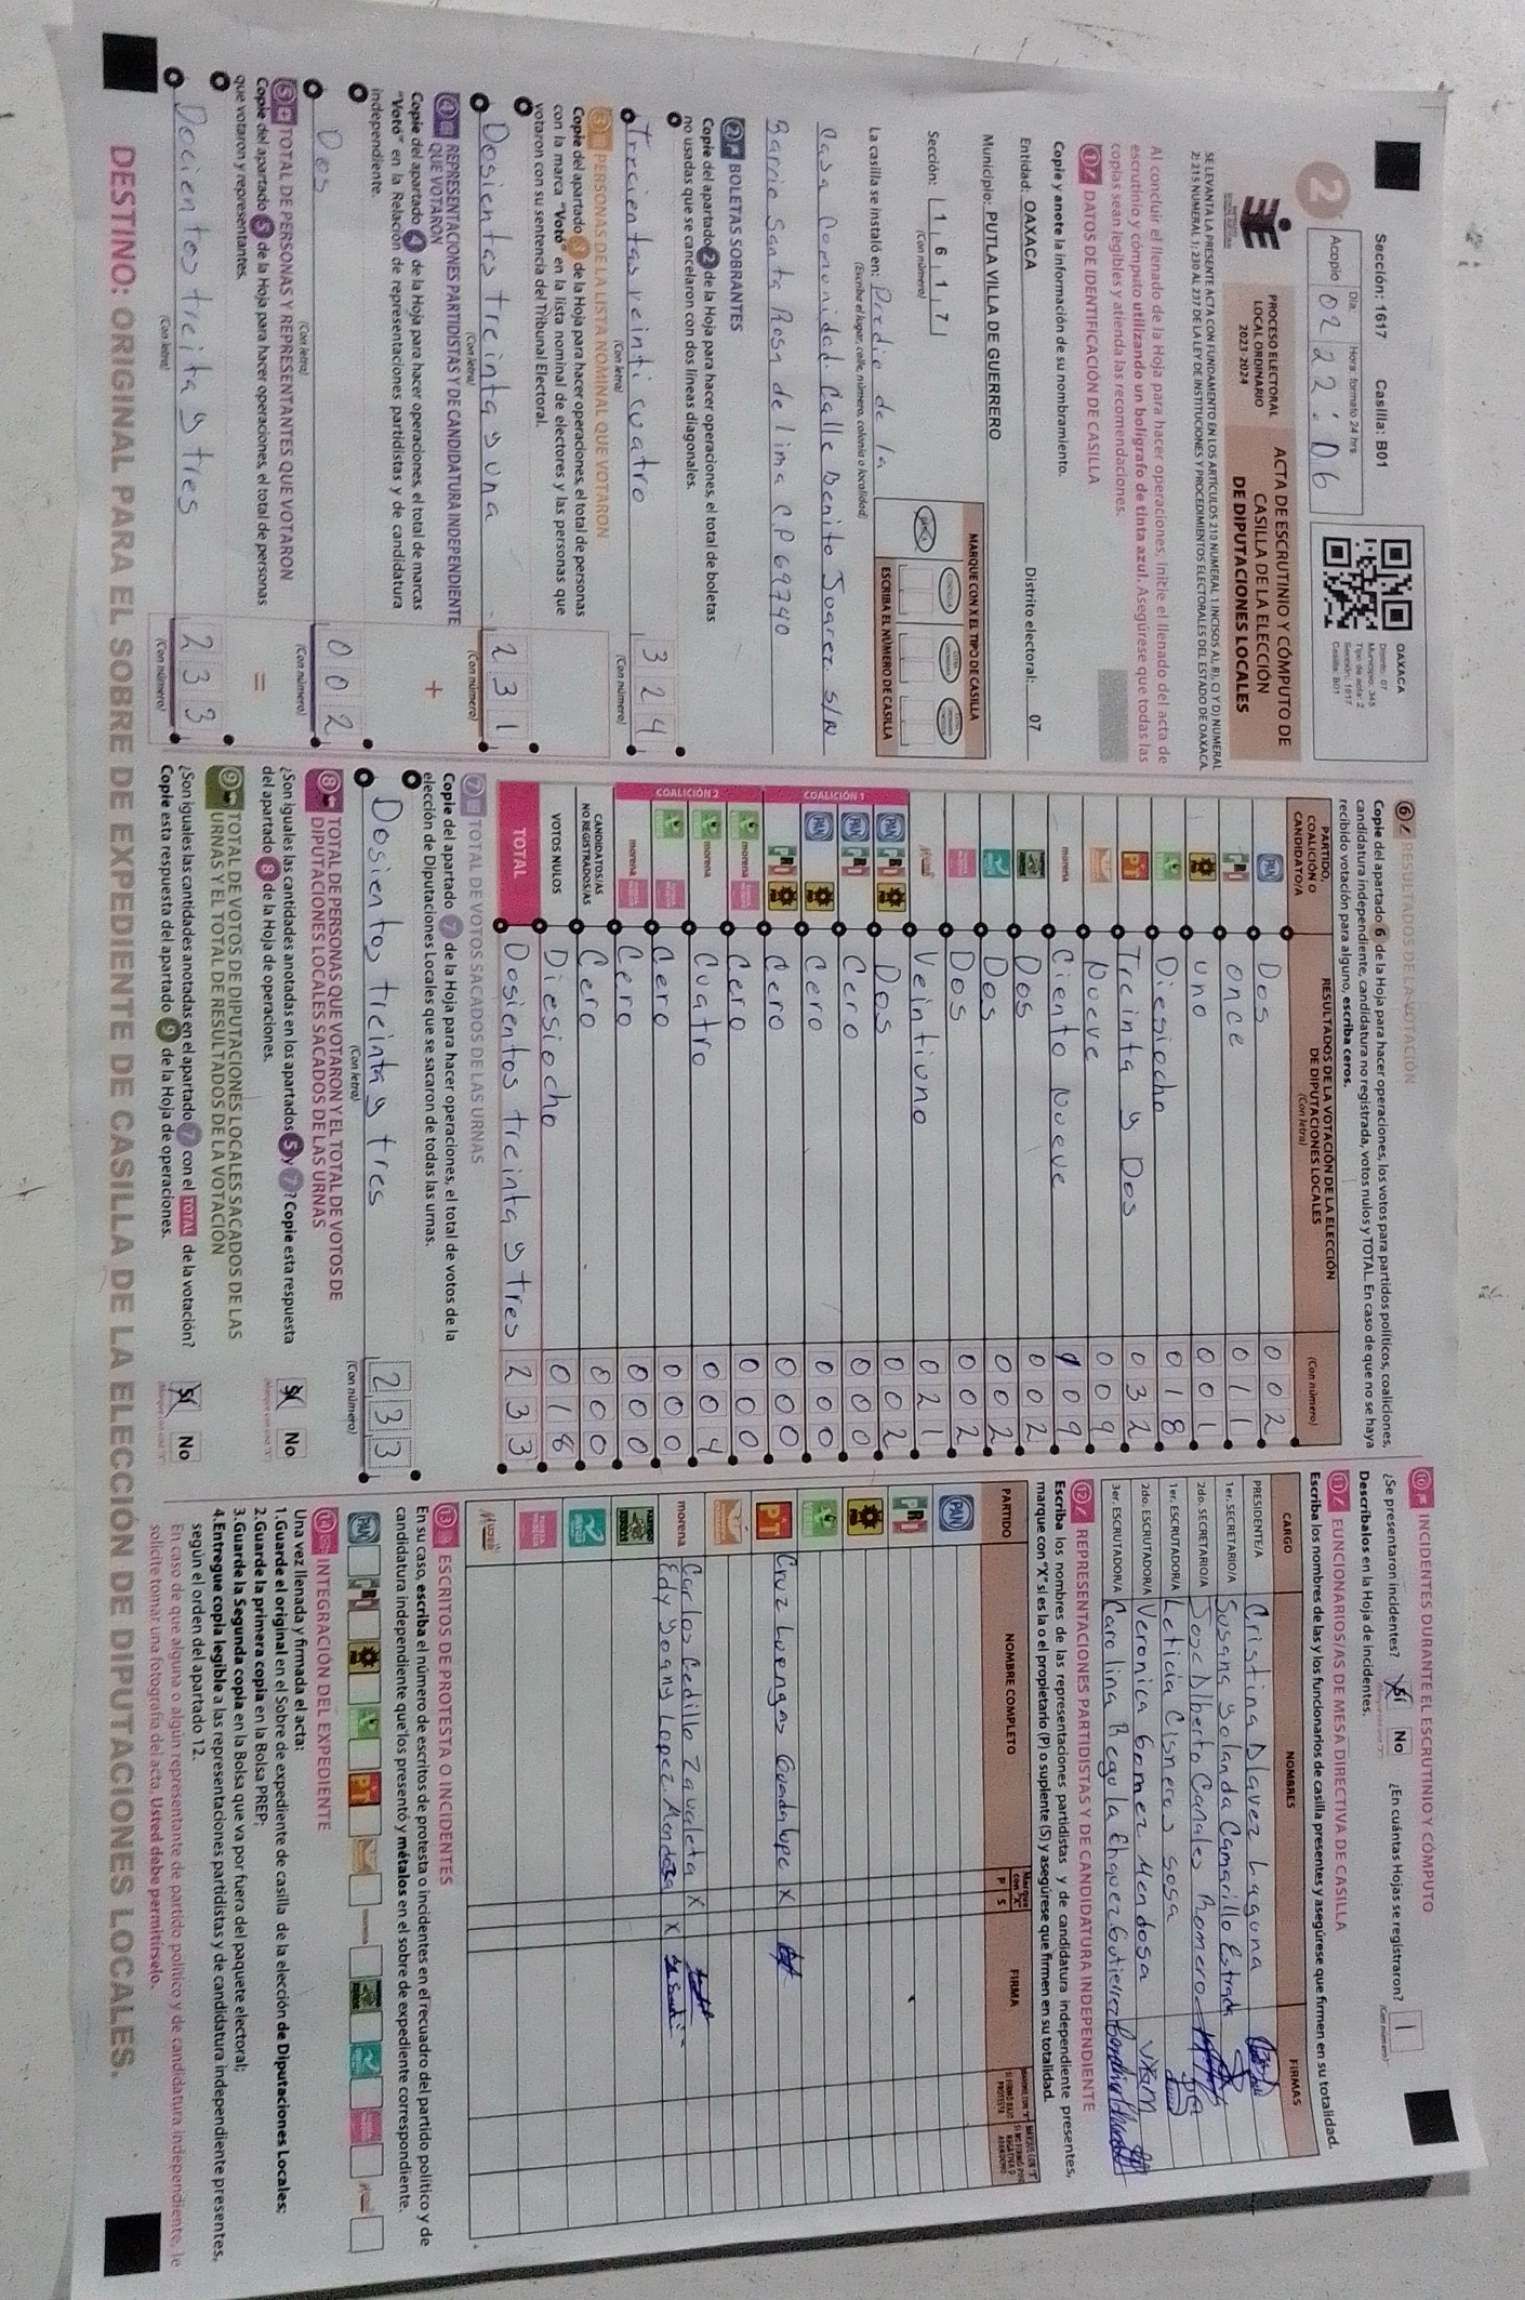 Sección: 1617 Casilla: B01
2
Día: Hora: formato 24 hrs
Acopio 02 22:06
OAXACA
Distrito: 07
Municipio: 345
Tipo de acta: 2
Sección: 1617
Casilla: B01
PROCESO ELECTORAL
LOCAL ORDINARIO
2023-2024
ACTA DE ESCRUTINIO Y CÓMPUTO DE
CASILLA DE LA ELECCIÓN
DE DIPUTACIONES LOCALES
SE LEVANTA LA PRESENTE ACTA CON FUNDAMENTO EN LOS ARTÍCULOS 210 NUMERAL 1 INCISOS A), B), C) Y D) NUMERAL
2; 215 NUMERAL 1; 230 AL 237 DE LA LEY DE INSTITUCIONES Y PROCEDIMIENTOS ELECTORALES DEL ESTADO DE OAXACA.
Al concluir el llenado de la Hoja para hacer operaciones, inicie el llenado del acta de
escrutinio y cómputo utilizando un bolígrafo de tinta azul. Asegúrese que todas las
copias sean legibles y atienda las recomendaciones.
1 DATOS DE IDENTIFICACIÓN DE CASILLA
Copie y anote la información de su nombramiento.
Entidad: OAXACA Distrito electoral: 07
Municipio: PUTLA VILLA DE GUERRERO
Sección: 1 6 1 7
(Con número)
MARQUE CON X EL TIPO DE CASILLA
ESCRIBA EL NÚMERO DE CASILLA
La casilla se instaló en: Predio de la
(Escriba el lugar, calle, número, colonia o localidad)
Casa Comunidad. Calle Benito Juarez S/N
Barrio Santa Rosa de lima C.P 69740
2 BOLETAS SOBRANTES
Copie del apartado 2 de la Hoja para hacer operaciones, el total de boletas
no usadas que se cancelaron con dos líneas diagonales.
Trecientas veinti cuatro 324
(Con letra) (Con número)
3 PERSONAS DE LA LISTA NOMINAL QUE VOTARON
Copie del apartado 3 de la Hoja para hacer operaciones, el total de personas
con la marca "Votó" en la lista nominal de electores y las personas que
votaron con su sentencia del Tribunal Electoral.
Dosientas treinta y una 231
(Con letra) (Con número)
4 REPRESENTACIONES PARTIDISTAS Y DE CANDIDATURA INDEPENDIENTE
QUE VOTARON
+
Copie del apartado 4 de la Hoja para hacer operaciones, el total de marcas
"Votó" en la Relación de representaciones partidistas y de candidatura
independiente.
Dos 002
(Con letra) (Con número)
5 TOTAL DE PERSONAS Y REPRESENTANTES QUE VOTARON
=
Copie del apartado 5 de la Hoja para hacer operaciones, el total de personas
que votaron y representantes.
Docientos treita y tres 233
(Con letra) (Con número)
6 RESULTADOS DE LA VOTACIÓN
Copie del apartado 6 de la Hoja para hacer operaciones, los votos para partidos políticos, coaliciones,
candidatura independiente, candidatura no registrada, votos nulos y TOTAL. En caso de que no se haya
recibido votación para alguno, escriba ceros.
PARTIDO,
COALICIÓN O
CANDIDATO/A
RESULTADOS DE LA VOTACIÓN DE LA ELECCIÓN
DE DIPUTACIONES LOCALES
(Con letra) (Con número)
PAN Dos 002
PRI once 011
PRD uno 001
Diesiocho 018
PT Treinta y Dos 032
Nueve 009
morena Ciento Nueve 109
Dos 002
Dos 002
Dos 002
Mujer Veintiuno 021
COALICIÓN 1
PAN PRI PRD Dos 002
PAN PRI Cero 000
PAN PRD Cero 000
PRI PRD Cero 000
COALICIÓN 2
morena Cero 000
morena Cuatro 004
Cero 000
morena Cero 000
CANDIDATOS/AS
NO REGISTRADOS/AS Cero 000
VOTOS NULOS Diesiocho 018
TOTAL Dosientos treinta y tres 233
7 TOTAL DE VOTOS SACADOS DE LAS URNAS
Copie del apartado 7 de la Hoja para hacer operaciones, el total de votos de la
elección de Diputaciones Locales que se sacaron de todas las urnas.
Dosientos treinta y tres 233
(Con letra) (Con número)
8 TOTAL DE PERSONAS QUE VOTARON Y EL TOTAL DE VOTOS DE
DIPUTACIONES LOCALES SACADOS DE LAS URNAS
¿Son iguales las cantidades anotadas en los apartados 5 y 7? Copie esta respuesta
del apartado 8 de la Hoja de operaciones.
Sí No
9 TOTAL DE VOTOS DE DIPUTACIONES LOCALES SACADOS DE LAS
URNAS Y EL TOTAL DE RESULTADOS DE LA VOTACIÓN
¿Son iguales las cantidades anotadas en el apartado 7 con el TOTAL de la votación?
Copie esta respuesta del apartado 9 de la Hoja de operaciones.
Sí No
10 INCIDENTES DURANTE EL ESCRUTINIO Y CÓMPUTO
¿Se presentaron incidentes? Sí No ¿En cuántas Hojas se registraron? 1
Descríbalos en la Hoja de incidentes.
11 FUNCIONARIOS/AS DE MESA DIRECTIVA DE CASILLA
Escriba los nombres de las y los funcionarios de casilla presentes y asegúrese que firmen en su totalidad.
CARGO NOMBRES FIRMAS
PRESIDENTE/A Cristina Nlavez Laguna
1er. SECRETARIO/A Susana Yolanda Camarillo Estrada
2do. SECRETARIO/A Jose Alberto Canales Romero
1er. ESCRUTADOR/A Leticia Cisneros Sosa
2do. ESCRUTADOR/A Veronica Gomez Mendosa
3er. ESCRUTADOR/A Carolina Regula Chavez Gutierrez
12 REPRESENTACIONES PARTIDISTAS Y DE CANDIDATURA INDEPENDIENTE
Escriba los nombres de las representaciones partidistas y de candidatura independiente presentes,
marque con "X" si es la o el propietario (P) o suplente (S) y asegúrese que firmen en su totalidad.
PARTIDO NOMBRE COMPLETO P S FIRMA
PAN
PRI
PRD
PT Cruz Luengas Guadalupe X
morena Carlos Cedillo Zavaleta X
Edy Yoany Lopez Mendoza X
Mujer
13 ESCRITOS DE PROTESTA O INCIDENTES
En su caso, escriba el número de escritos de protesta o incidentes en el recuadro del partido político y de
candidatura independiente que los presentó y métalos en el sobre de expediente correspondiente.
PAN PRI PRD PT
14 INTEGRACIÓN DEL EXPEDIENTE
Una vez llenada y firmada el acta:
1. Guarde el original en el Sobre de expediente de casilla de la elección de Diputaciones Locales;
2. Guarde la primera copia en la Bolsa PREP;
3. Guarde la Segunda copia en la Bolsa que va por fuera del paquete electoral;
4. Entregue copia legible a las representaciones partidistas y de candidatura independiente presentes,
según el orden del apartado 12.
En caso de que alguna o algún representante de partido político y de candidatura independiente, le
solicite tomar una fotografía del acta. Usted debe permitírselo.
DESTINO: ORIGINAL PARA EL SOBRE DE EXPEDIENTE DE CASILLA DE LA ELECCIÓN DE DIPUTACIONES LOCALES.